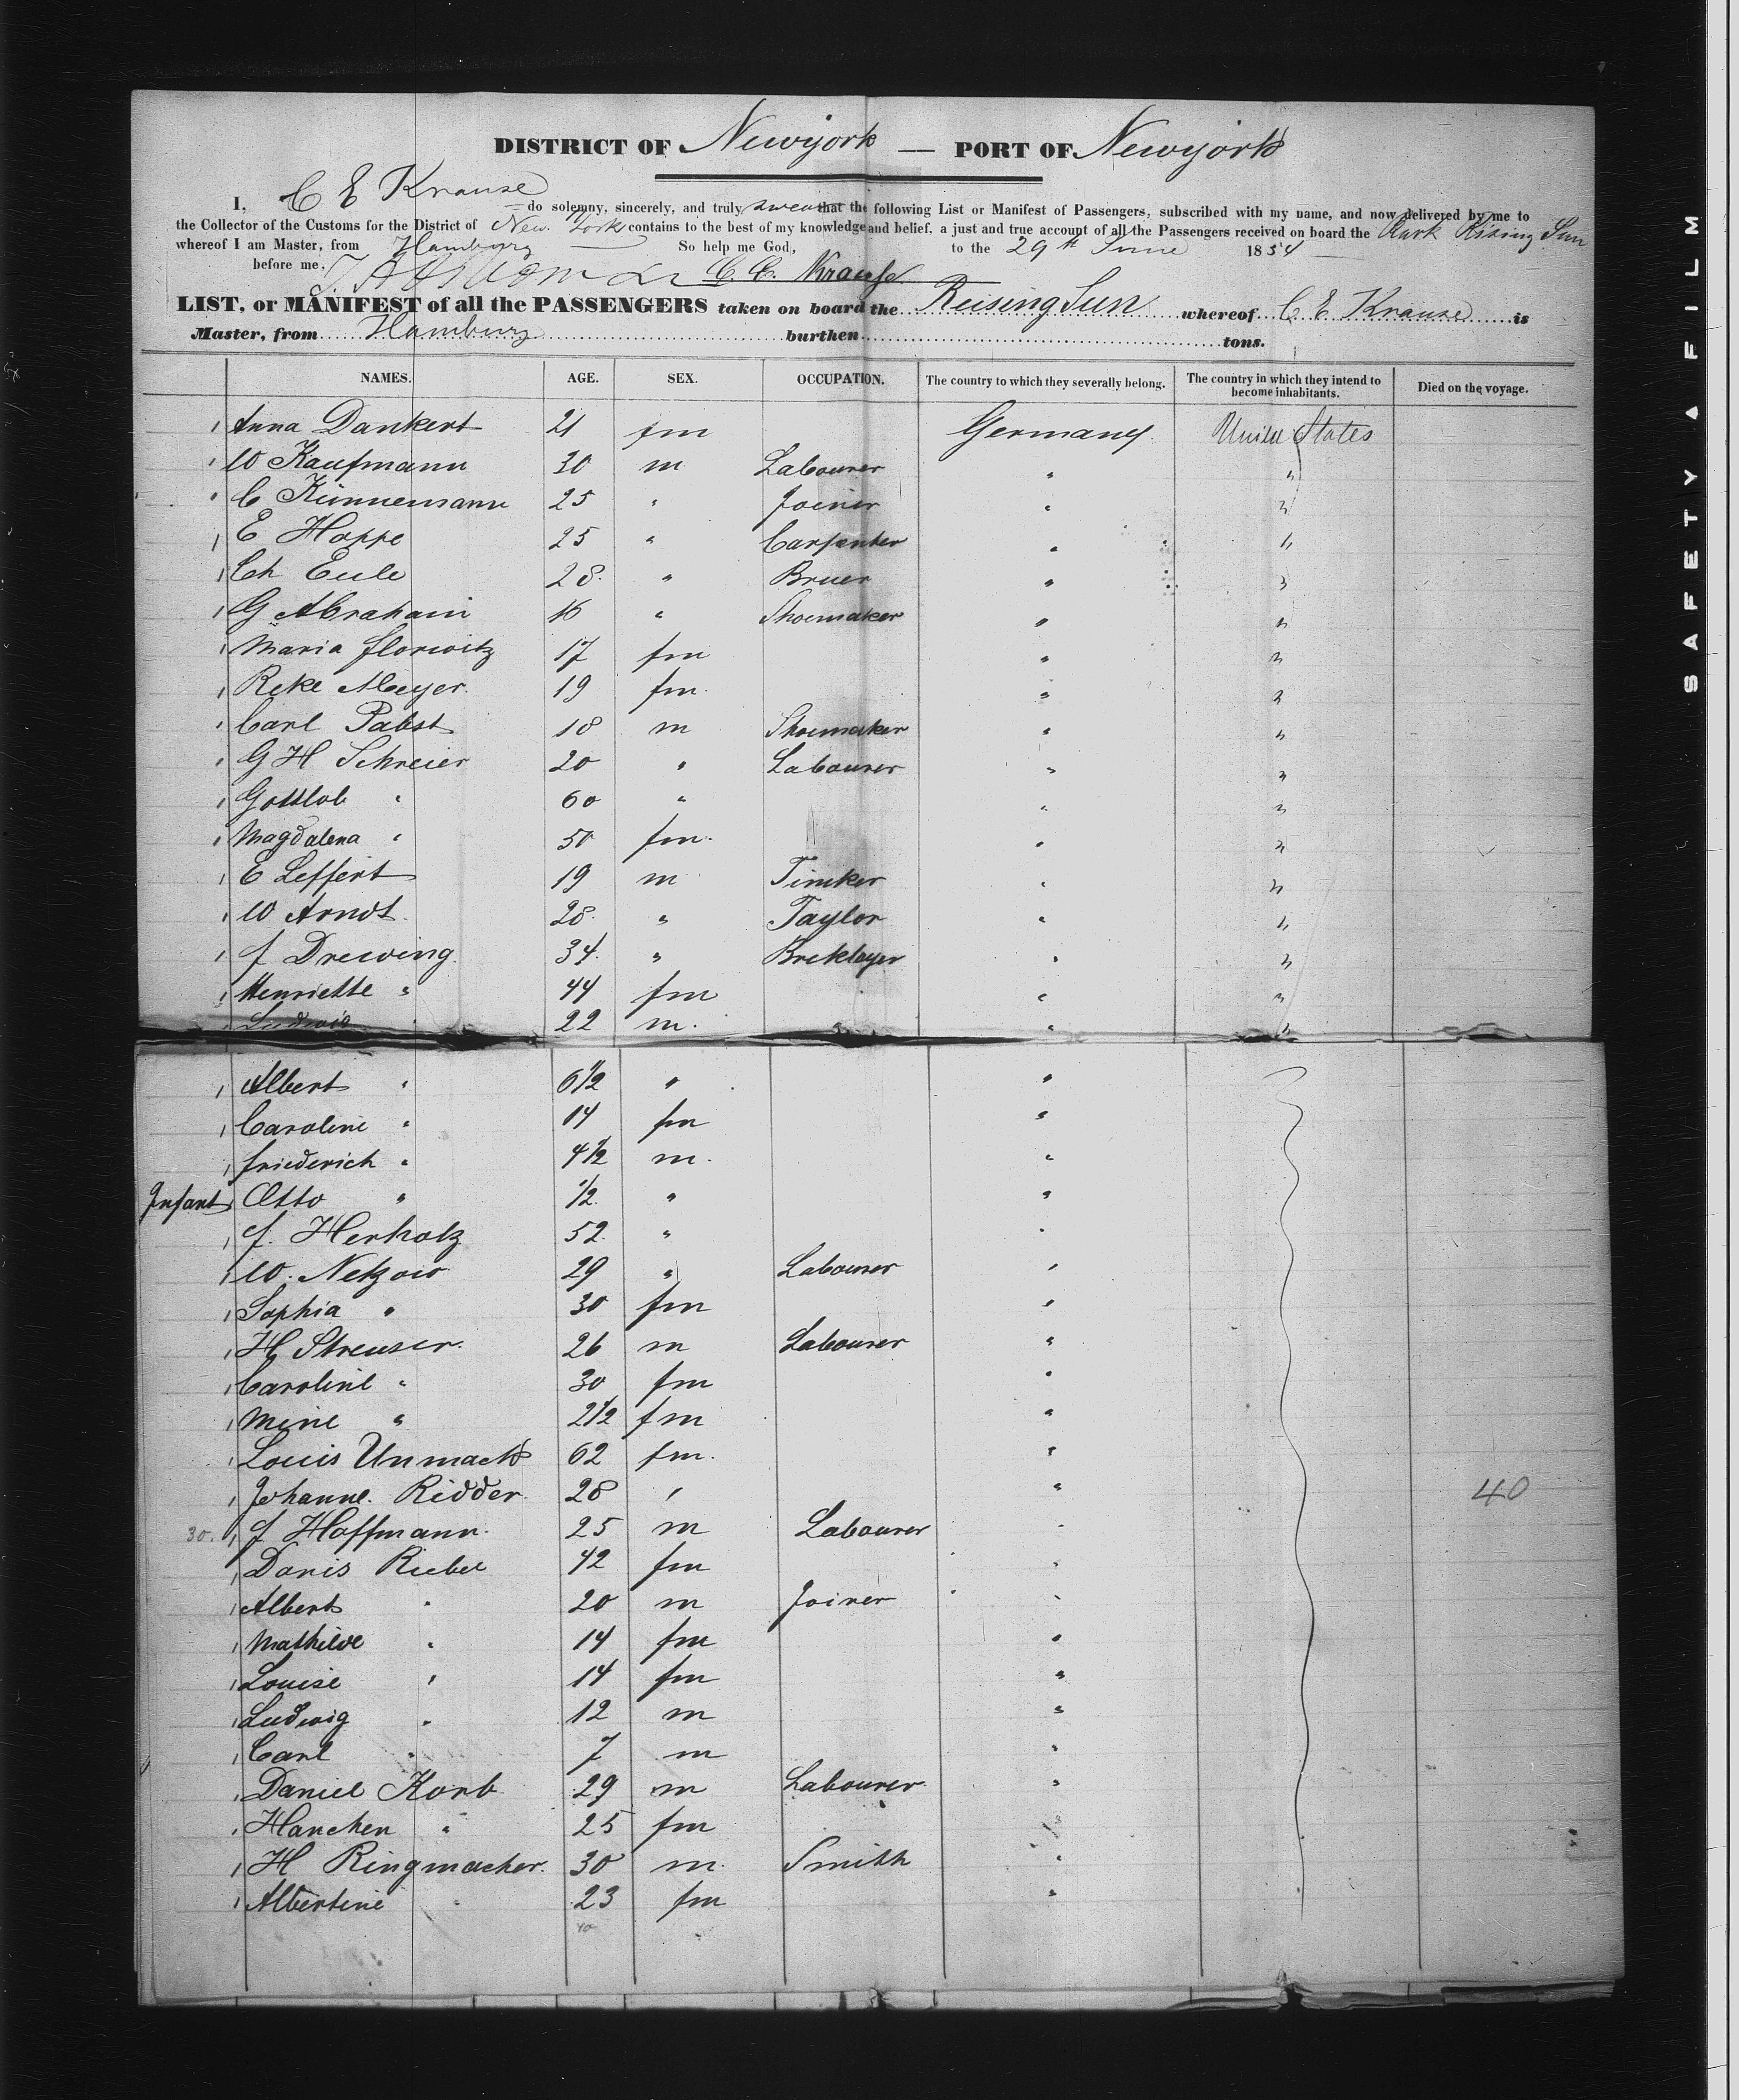 DISTRICT OF Newyork — PORT OF Newyork
I, C E Krause do solemny, sincerely, and truly swear that the following List or Manifest of Passengers, subscribed with my name, and now delivered by me to
the Collector of the Customs for the District of New York contains to the best of my knowledge and belief, a just and true account of all the Passengers received on board the Bark Rising Sun
whereof I am Master, from Hamburg So help me God, to the 29th June 1854
before me, C. E. Krause
LIST, or MANIFEST of all the PASSENGERS taken on board the Reising Sun whereof C E Krause is
Master, from Hamburg burthen tons.
NAMES. AGE. SEX. OCCUPATION. The country to which they severally belong. The country in which they intend to become inhabitants. Died on the voyage.
1 Anna Dankert 21 fm Germany United States
1 W Kaufmann 30 m Labourer " "
1 C Künnemann 25 " Joiner " "
1 E Hoppe 25 " Carpenter " "
1 Ch Eule 28. " Bruer " "
1 G Abraham 16 " Shoemaker " "
1 Maria Florwitz 17 fm " "
1 Reke Meyer 19 fm. " "
1 Carl Pabst 18 m Shoemaker " "
1 G H Schreier 20 " Labourer " "
1 Gottlob " 60 " " "
1 Magdalena " 50 fm. " "
1 E Leffert 19 m Timker " "
1 W Arndt. 28. " Taylor " "
1 f Drewing. 34. " Breklayer " "
1 Henriette " 44 fm " "
1 Ludwig " 22 m. " "
1 Albert " 6 1/2 " "
1 Caroline " 14 fm "
1 friederich " 4 1/2 m. "
Infant Otto " 1/2. " "
1 f. Herholz 52. " "
1 W. Netzow 29 " Labourer "
1 Sophia " 30 fm "
1 H Streuser. 26 m Labourer "
1 Caroline " 30 fm "
1 Mine " 2 1/2 fm "
1 Louis Unmack 62 fm. "
1 Johanne. Ridder 28 " " 40
30. 1 f Hoffmann. 25 m Labourer "
1 Doris Rieber 42 fm "
1 Albert " 20 m Joiner "
1 Mathilde " 14 fm "
1 Louise " 14 fm "
1 Ludwig " 12 m "
1 Carl " 7 m "
1 Daniel Korb 29 m Labourer "
1 Hanchen " 25 fm "
1 H Ringmacher. 30 m. Smith "
1 Albertine " 23 fm "
40
SAFETY A FILM